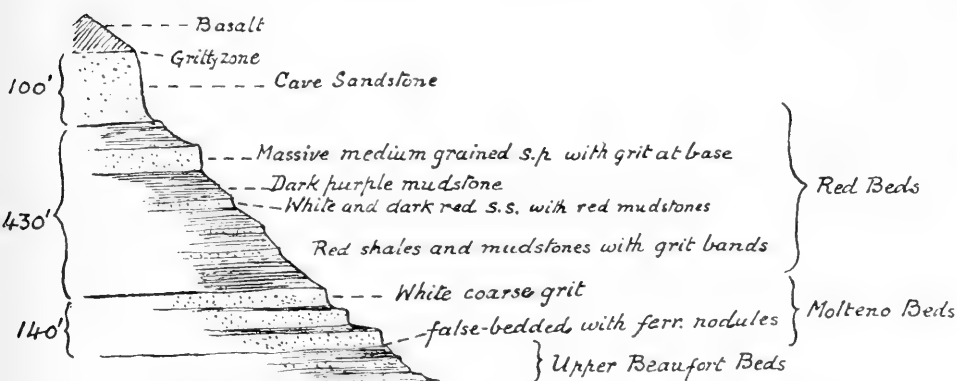 Basalt
Gritty zone
100' Cave Sandstone
Massive medium grained s.p. with grit at base
Dark purple mudstone
Red Beds
White and dark red s.s. with red mudstones
430'
Red shales and mudstones with grit bands
White coarse grit
Molteno Beds
140' false-bedded, with ferr. nodules
Upper Beaufort Beds